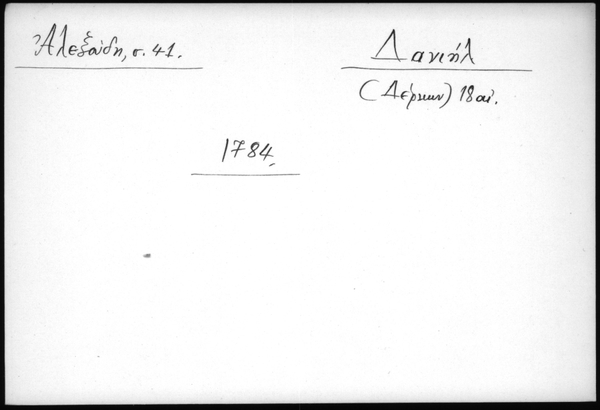 Ἀλεξούδη, σ. 41.
Δανιήλ
(Δέρκων) 18 αἰ.
1784